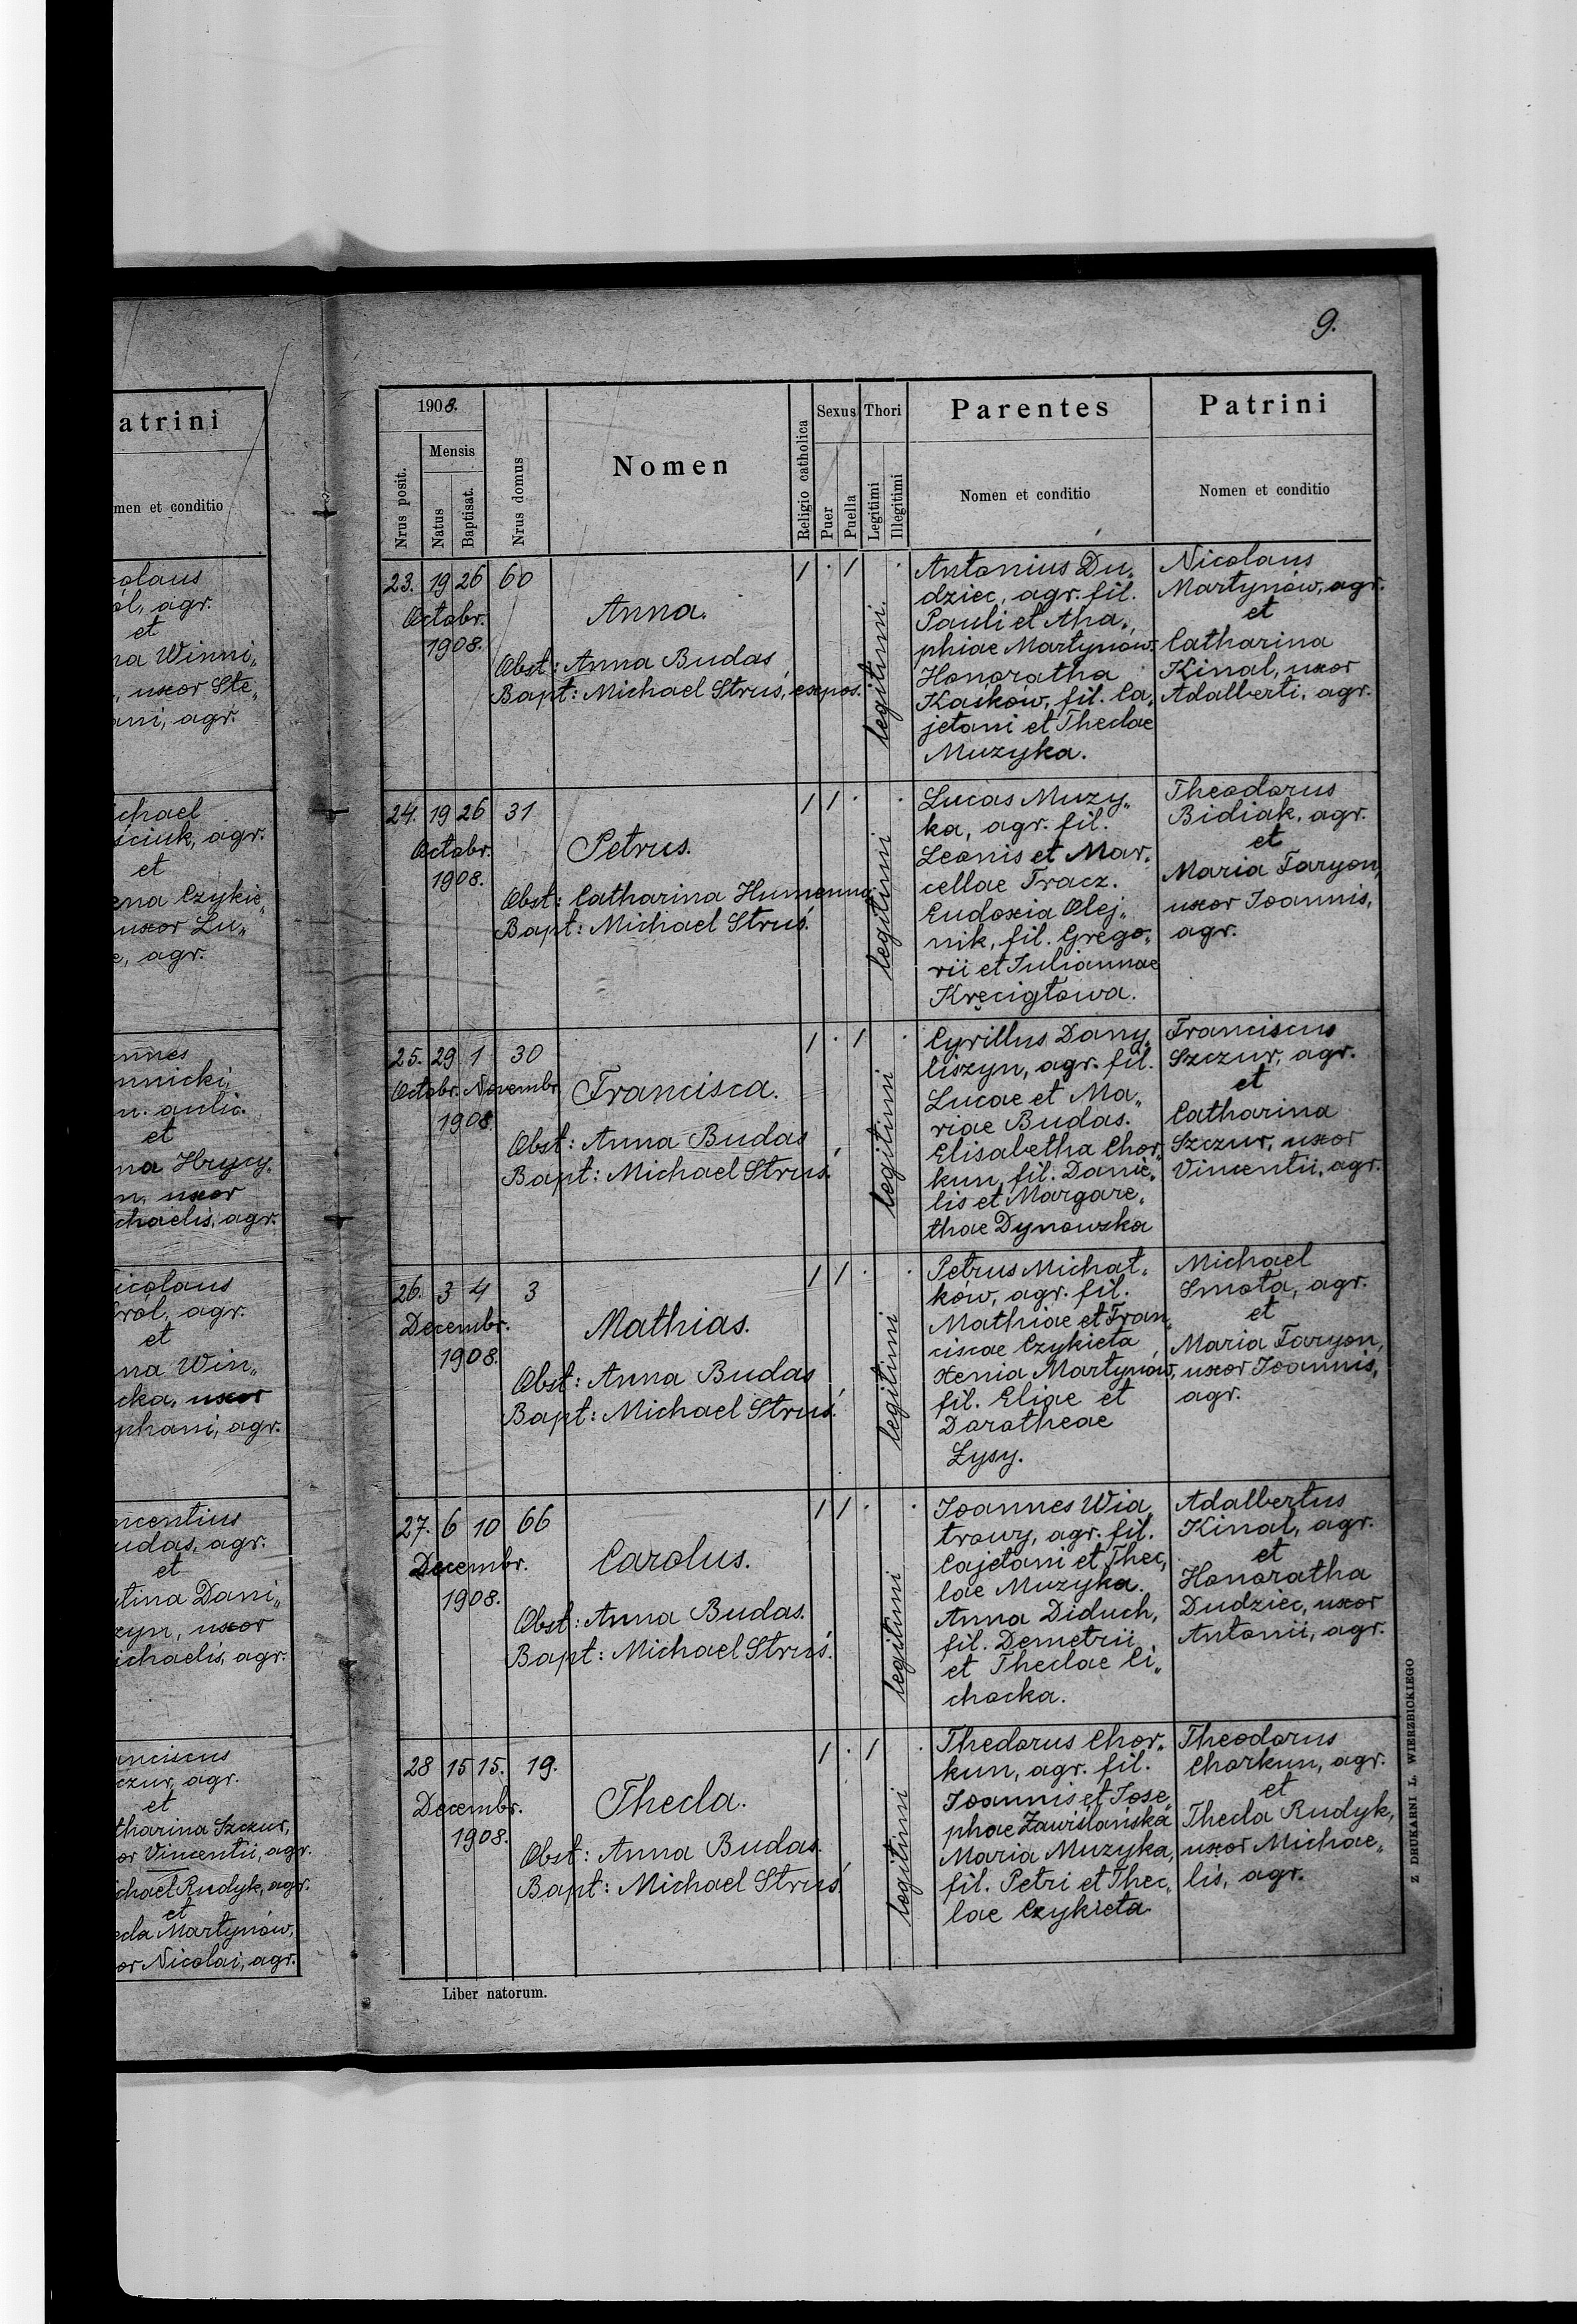 9.
atrini
men et conditio
colaus
ól, agr.
et
na Winni„
, uxor Ste„
ani, agr.
ichael
ściuk, agr.
et
ena Czykie„
uxor Lu„
e, agr.
annes
nnicki,
n. aulic.
et
na Hrycy„
n, uxor
ichaelis, agr.
icolaus
ról, agr.
et
na Win„
cka, uxor
phani, agr.
incentius
udas, agr.
et
tina Dani„
zyn, uxor
ichaelis, agr.
anciscus
czur, agr.
et
tharina Szczur,
or Vincentii, agr.
ichael Rudyk, agr.
et
ecla Martynów,
or Nicolai, agr.
1908.
Nrus posit.
Mensis
Natus
Baptisat.
Nrus domus
Nomen
Religio catholica
Sexus
Puer
Puella
Thori
Legitimi
Illegitimi
Parentes
Nomen et conditio
Patrini
Nomen et conditio
23. 19 26 60
Octobr.
1908.
Anna.
Obst: Anna Budas
Bapt: Michael Struś, expos.
1 . 1 .
legitimi.
Antonius Du„
dziec, agr. fil.
Pauli et Aha„
phiae Martynów.
Honoratha
Kaśków, fil. Ca„
jetani et Theclae
Muzyka.
Nicolaus
Martynów, agr.
et
Catharina
Kinal, uxor
Adalberti, agr.
24. 19 26 31
Octobr.
1908.
Petrus.
Obst: Catharina Humenna
Bapt: Michael Struś.
1 1 . .
legitimi
Lucas Muzy„
ka, agr. fil.
Leonis et Mar„
cellae Tracz.
Eudoxia Olej„
nik, fil. Grego„
rii et Juliannae
Kręcigłowa.
Theodorus
Bidiak, agr.
et
Maria Faryon,
uxor Joannis,
agr.
25. 29 1 30
Octobr. Novembr.
1908.
Francisca.
Obst: Anna Budas
Bapt: Michael Struś.
1 . 1 .
legitimi
Cyrillus Dany„
liszyn, agr. fil.
Lucae et Ma„
riae Budas.
Elisabetha Chor„
kun, fil. Danie„
lis et Margare„
thae Dynowska
Franciscus
Szczur, agr.
et
Catharina
Szczur, uxor
Vincentii, agr.
26. 3 4 3
Decembr.
1908.
Mathias.
Obst: Anna Budas
Bapt: Michael Struś.
1 1 . .
legitimi
Petrus Michał„
ków, agr. fil.
Mathiae et Fran„
ciscae Czykieta
Xenia Martynów,
fil. Eliae et
Dorotheae
Łysy.
Michael
Smoła, agr.
et
Maria Faryon,
uxor Joannis,
agr.
27. 6 10 66
Decembr.
1908.
Carolus.
Obst: Anna Budas.
Bapt: Michael Struś.
1 1 . .
legitimi
Joannes Wia„
trowy, agr. fil.
Cajetani et Thec„
lae Muzyka.
Anna Diduch,
fil. Demetrii
et Theclae Ci„
chocka.
Adalbertus
Kinal, agr.
et
Honoratha
Dudziec, uxor
Antonii, agr.
28 15 15. 19.
Decembr.
1908.
Thecla.
Obst: Anna Budas.
Bapt: Michael Struś.
1 . 1 .
legitimi
Thedorus Chor„
kun, agr. fil.
Joannis et Jose„
phae Zawiślańska
Maria Muzyka,
fil. Petri et Thec„
lae Czykieta
Theodorus
Chorkun, agr.
et
Thecla Rudyk,
uxor Michae„
lis, agr.
Liber natorum.
Z DRUKARNI L. WIERZBICKIEGO